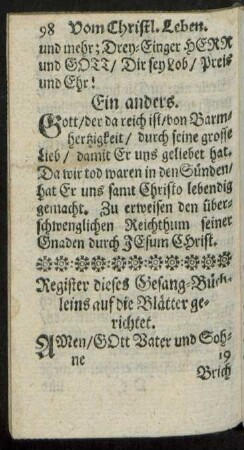 98 Vom Christl. Leben.
und mehr; Drey-Einger HERR
und GOTT / Dir sey Lob / Preis
und Ehr!
Ein anders.
Gott / der da reich ist / von Barm-
hertzigkeit / durch seine grosse
Lieb / damit Er uns geliebet hat.
Da wir tod waren in den Sünden /
hat Er uns samt Christo lebendig
gemacht. Zu erweisen den über-
schwenglichen Reichthum seiner
Gnaden durch JEsum CHrist.
Register dieses Gesang-Büch-
leins auf die Blätter ge-
richtet.
AMen / GOtt Vater und Soh-
ne 19
Brich